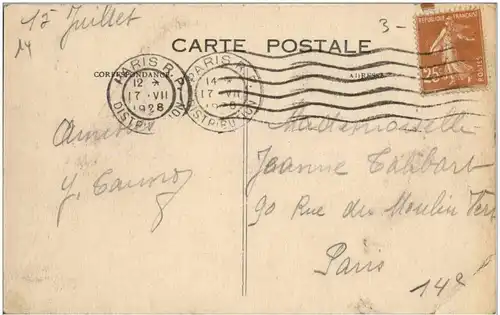 15 Juillet
3-
CARTE POSTALE
CORRESPONDANCE
ADRESSE
REPUBLIQUE FRANÇAISE
25c
POSTES
PARIS R.P.
12 *
17 · VII
1928
DISTRIBUTION
PARIS R.P.
14 *
17 · VII
1928
DISTRIBUTION
Mademoiselle
Jeanne Talibart
90 Rue du Moulin Vert
Paris
14e